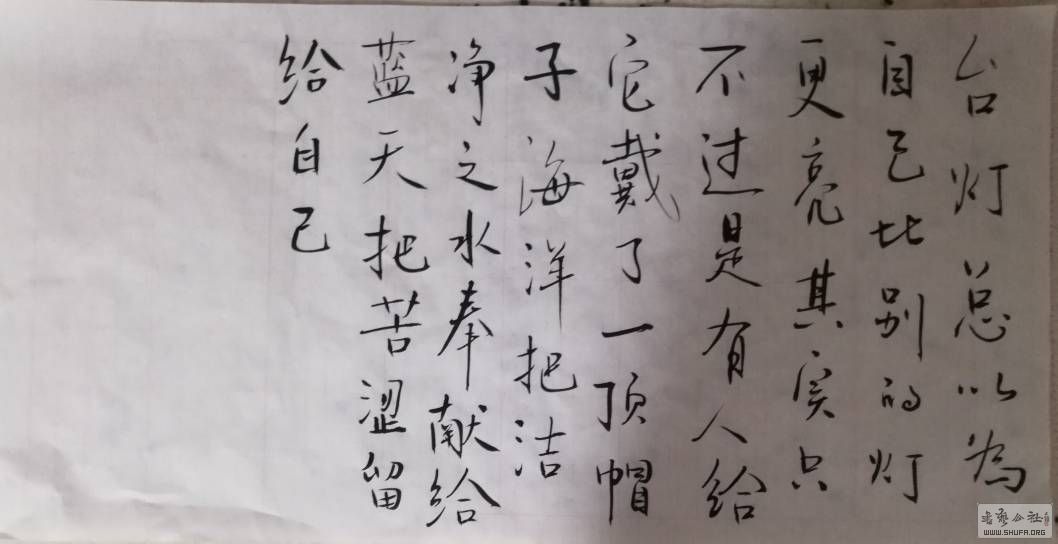 台灯总以为
自己比别的灯
更亮其实只
不过是有人给
它戴了一顶帽
子海洋把洁
净之水奉献给
蓝天把苦涩留
给自己
WWW.SHUFA.ORG